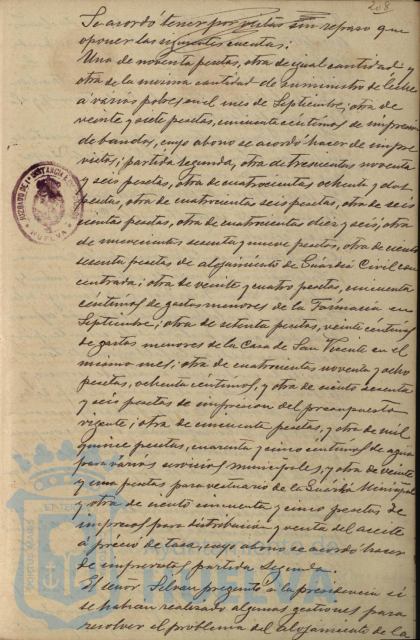 208
Se acordó tener por vistas sin reparo que
oponer las siguientes cuentas:
Una de noventa pesetas, otra de igual cantidad y
otra de la misma cantidad de suministro de leche
á varios pobres en el mes de Septiembre; otra de
veinte y siete pesetas, cincuenta céntimos de impresión
de bandos, cuyo abono se acordó hacer de impre-
vistos; partida segunda, otra de trescientas noventa
y seis pesetas, otra de cuatrocientas ochenta y dos
pesetas, otra de cuatrocientas seis pesetas, otra de seis
cientas pesetas, otra de cuatrocientas diez y seis, otra
de novecientas sesenta y nueve pesetas, otra de ciento
sesenta pesetas de alojamiento de Guardia Civil con-
centrada; otra de veinte y cuatro pesetas, cincuenta
céntimos de gastos menores de la Farmacia en
Septiembre; otra de setenta pesetas, veinte céntimos
de gastos menores de la Casa de San Vicente en el
mismo mes; otra de cuatrocientas noventa y ocho
pesetas, ochenta céntimos, y otra de ciento sesenta
y seis pesetas de impresion del presupuesto
vigente; otra de cincuenta pesetas, y otra de mil
quince pesetas, cuarenta y cinco céntimos de agua
para varios servicios municipales, y otra de veinte
y una pesetas para vestuario de la Guardia Municipal
y otra de ciento cincuenta y cinco pesetas de
impresos para distribucion y venta del aceite
á precio de tasa, cuyo abono se acordó hacer
de imprevistos partida segunda.
El señor Silvan preguntó a la presidencia si
se habian realizado algunas gestiones para
resolver el problema del alojamiento de la
JUZGADO DE 1ª INSTANCIA
HUELVA
Ayuntamiento de
HUELVA